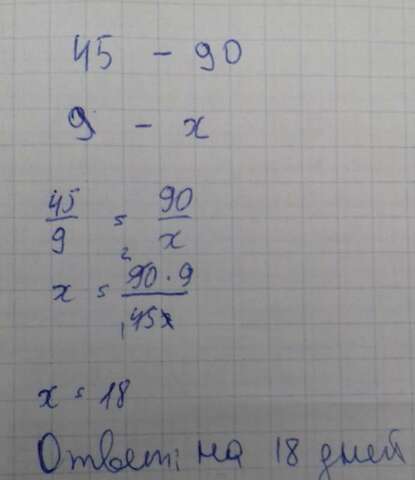 45 - 90
9 - x
45/9 = 90/x
x = 90·9/45
2
1
x = 18
Ответ: на 18 дней